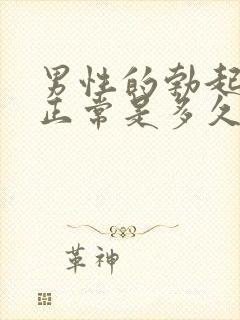 男性的勃起
正常是多久
革神